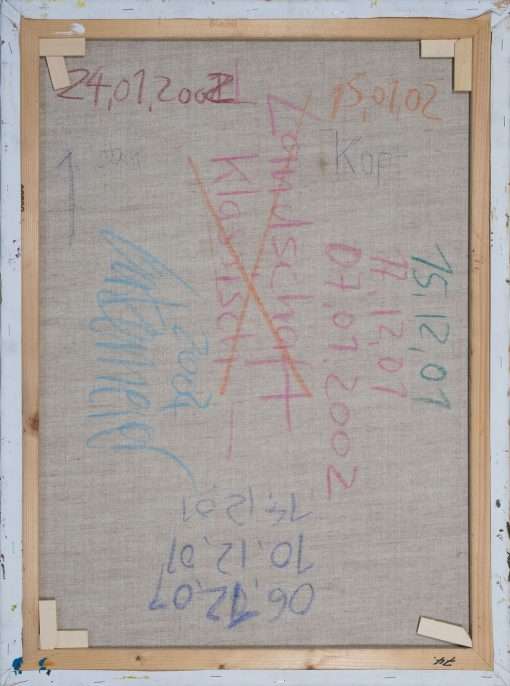 24,01,2002
15,01,02
Kopf
Landschaft
Klassisch
15,12,01
11,12,01
07,01,2002
2002
14,12,01
10,12,01
06,12,01
74.